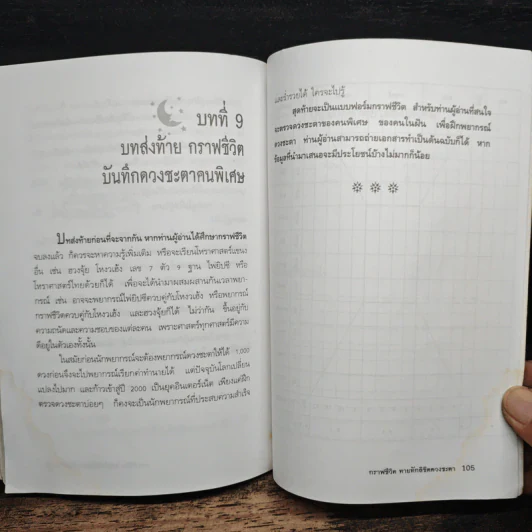 บทที่ 9
บทส่งท้าย กราฟชีวิต
บันทึกดวงชะตาคนพิเศษ
บทส่งท้ายก่อนที่จะจากกัน หากท่านผู้อ่านได้ศึกษากราฟชีวิต
จบลงแล้ว ก็ควรจะหาความรู้เพิ่มเติม หรือจะเรียนโหราศาสตร์แขนง
อื่น เช่น ฮวงจุ้ย โหงวเฮ้ง เลข 7 ตัว 9 ฐาน ไพ่ยิปซี หรือ
โหราศาสตร์ไทยด้วยก็ได้ เพื่อจะได้นำมาผสมผสานกันเวลาพยา-
กรณ์ เช่น อาจจะพยากรณ์ไพ่ยิปซีควบคู่กับโหงวเฮ้ง หรือพยากรณ์
กราฟชีวิตควบคู่กับโหงวเฮ้ง และฮวงจุ้ยก็ได้ ไม่ว่ากัน ขึ้นอยู่กับ
ความถนัดและความชอบของแต่ละคน เพราะศาสตร์ทุกศาสตร์มีความ
ดีอยู่ในตัวเองทั้งนั้น
ในสมัยก่อนนักพยากรณ์จะต้องพยากรณ์ดวงชะตาให้ได้ 1,000
ดวงก่อนจึงจะไปพยากรณ์เรียกค่าทำนายได้ แต่ปัจจุบันโลกเปลี่ยน
แปลงไปมาก และก้าวเข้าสู่ปี 2000 เป็นยุคอินเตอร์เน็ต เพียงแต่ฝึก
ตรวจดวงชะตาบ่อยๆ ก็คงจะเป็นนักพยากรณ์ที่ประสบความสำเร็จ
และร่ำรวยได้ ใครจะไปรู้
สุดท้ายจะเป็นแบบฟอร์มกราฟชีวิต สำหรับท่านผู้อ่านที่สนใจ
จะตรวจดวงชะตาของคนพิเศษ ของคนในฝัน เพื่อฝึกพยากรณ์
ดวงชะตา ท่านผู้อ่านสามารถถ่ายเอกสารทำเป็นต้นฉบับก็ได้ หวัง
ข้อมูลที่นำมาเสนอจะมีประโยชน์บ้างไม่มากก็น้อย
กราฟชีวิต ทายทักลิขิตดวงชะตา 105